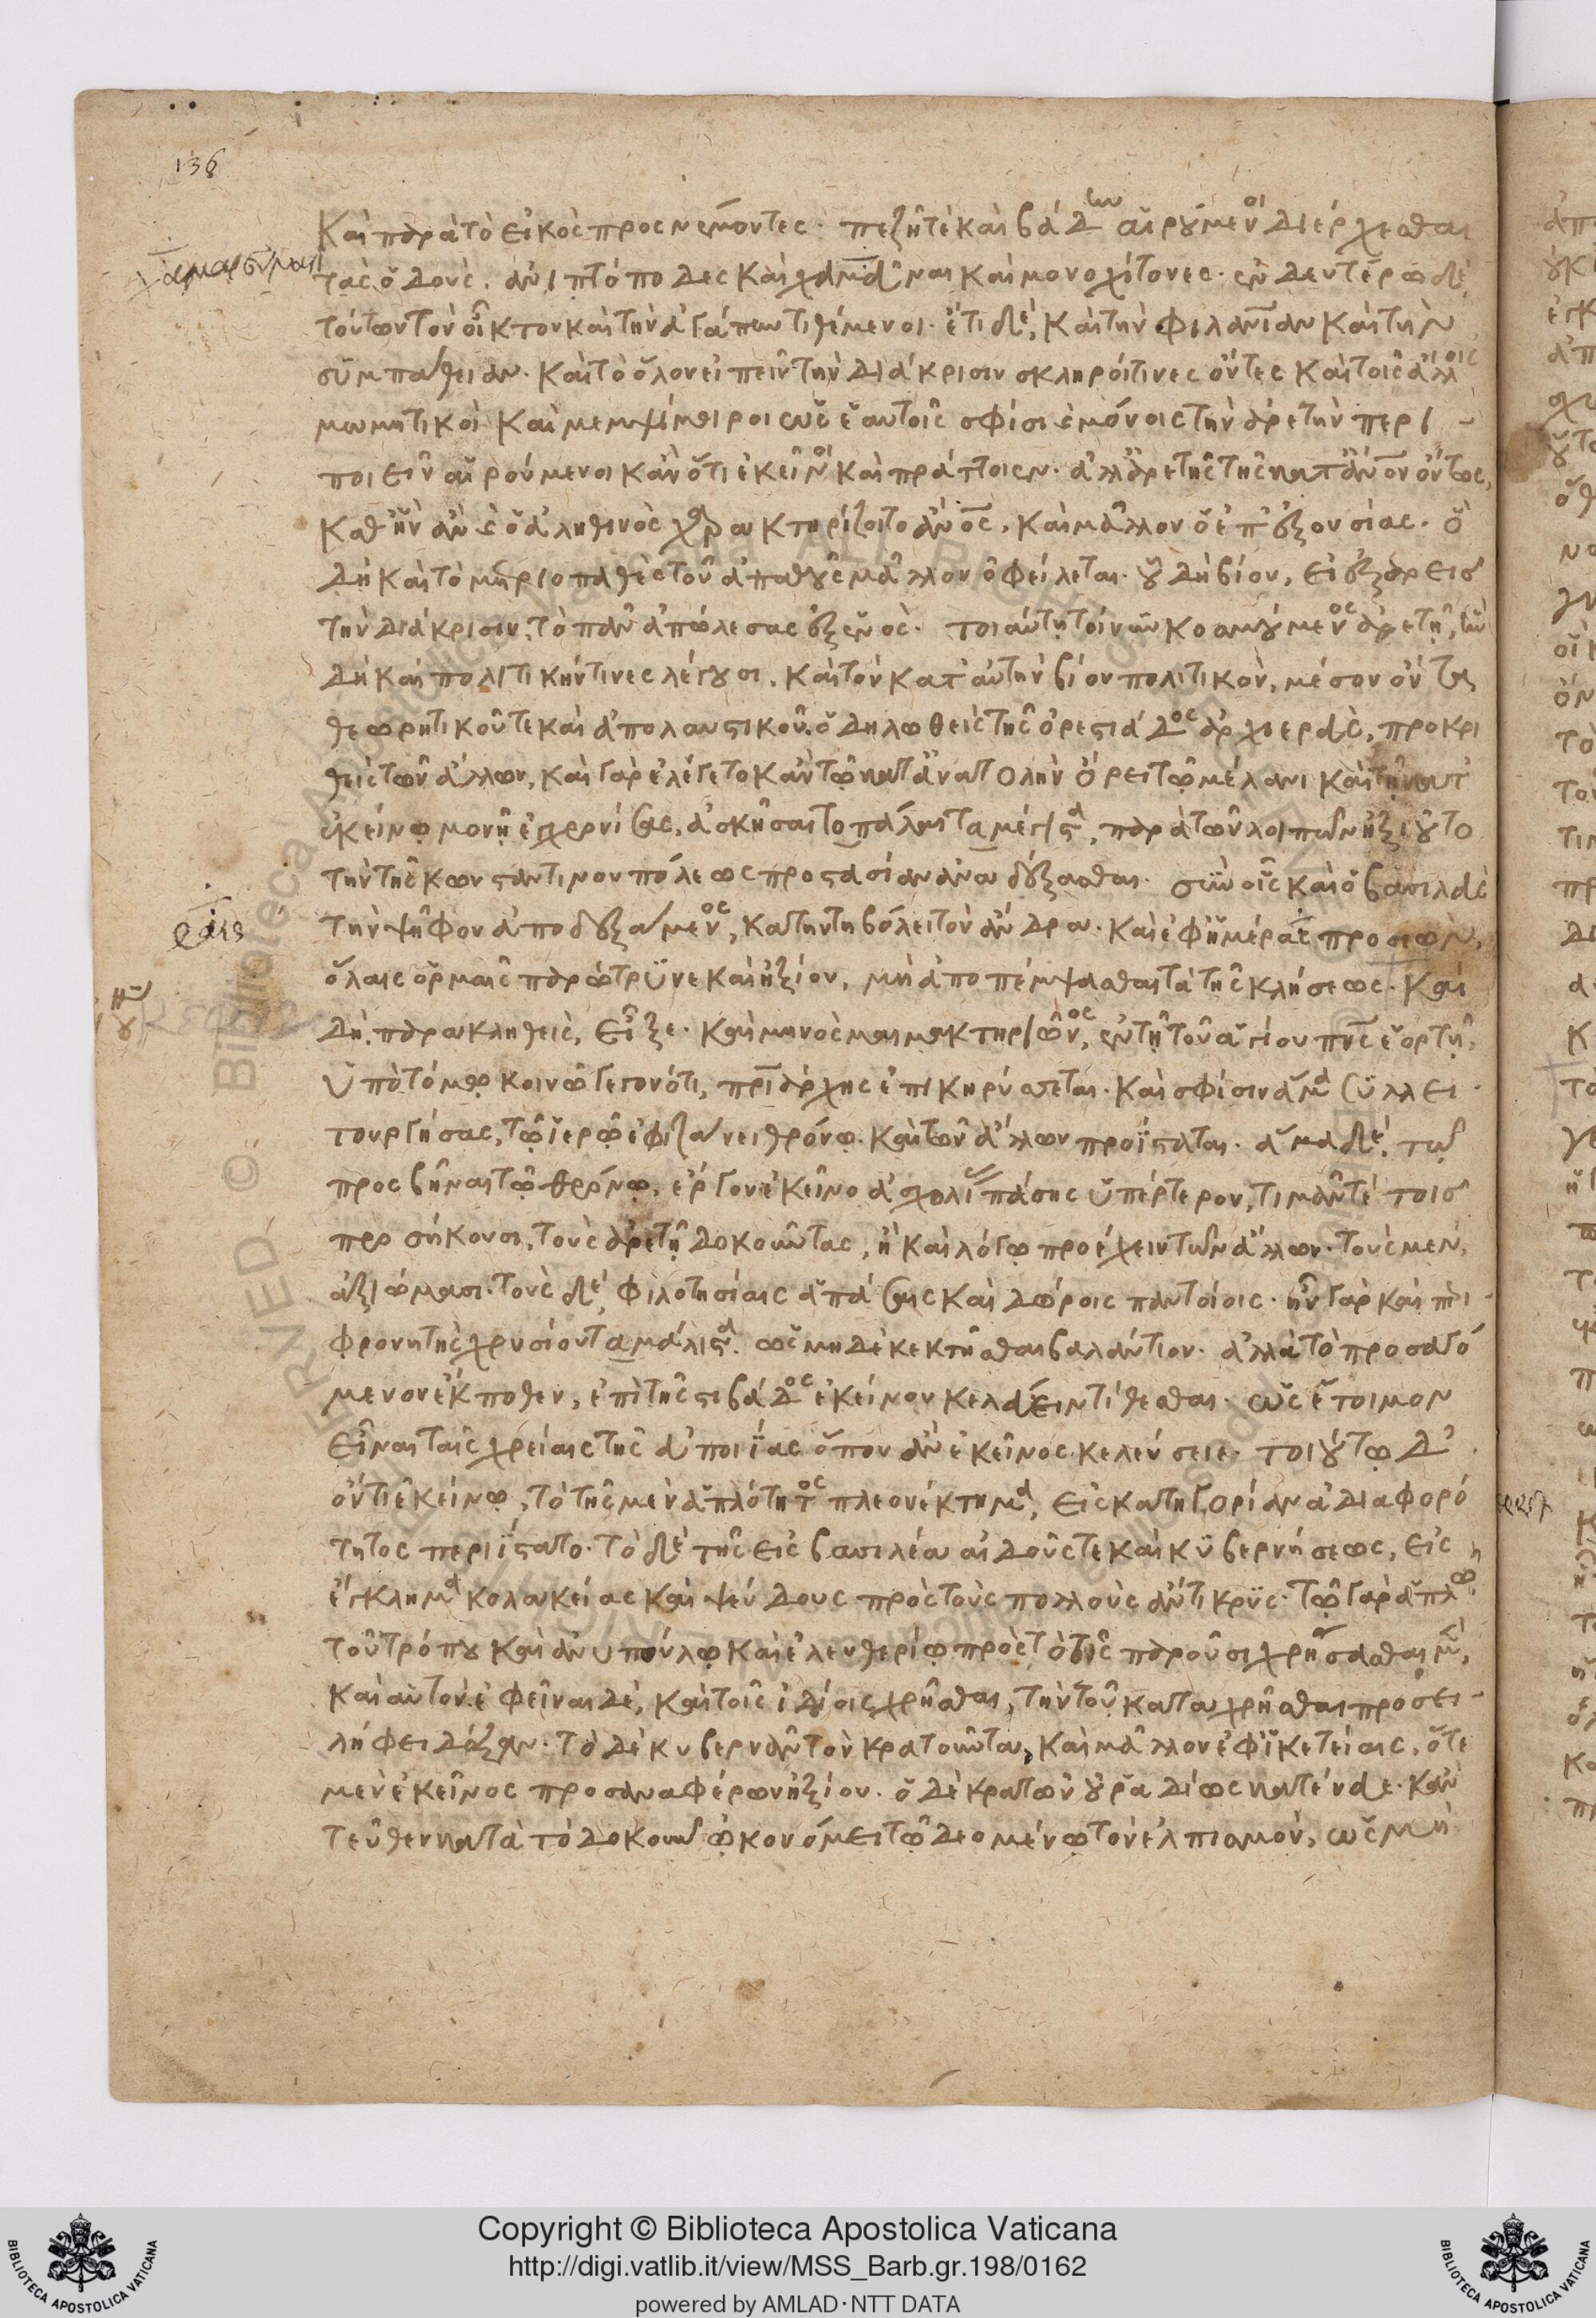 136
καὶ παρὰ τὸ εἰκὸς προσνέμοντες. πεζῇ τὲ καὶ βάδην αἱρούμενοι διέρχεσθαι
τὰς ὁδοὺς. ἀνιπτόποδες καὶ χαμαιεῦναι καὶ μονοχίτωνες. ἐν δευτέρῳ δὲ
τούτων τὸν οἶκτον καὶ τὴν ἀγάπην τιθέμενοι. ἔτι δὲ, καὶ τὴν φιλανίαν καὶ τὴν
συμπάθειαν. καὶ τὸ ὅλον εἰπεῖν τὴν διάκρισιν σκληροί τινες ὄντες καὶ τοῖς ἄλλοις
μωμητικοὶ καὶ μεμψίμοιροι ὡς ἑαυτοῖς σφίσι μόνοις τὴν ἀρετὴν περι
ποιεῖν αἱρούμενοι κἂν ὅτι ἐκεῖνοι καὶ πράττοιεν. ἀλλ' ἀρετῆς τῆς κατ' ἄνον ὄντως,
καθ' ἣν ἂν ὁ ἀληθινὸς χαρακτηρίζοιτο ἄνος. καὶ μᾶλλον ὁ ἐπ' ἐξουσίας. ᾧ
δὴ καὶ τὸ μετριοπαθὲς τοῦ ἀπαθοῦς μᾶλλον ὀφείλεται. οὗ δὴ βίου, εἰ ἐξαρεῖς
τὴν διάκρισιν, τὸ πᾶν ἀπώλεσας ἐξ ἑνὸς. τοιαύτῃ τοίνυν κοσμούμενος ἀρετῇ, ἣν
δὴ καὶ πολιτικήν τινες λέγουσι. καὶ τὸν κατ' αὐτὴν βίον πολιτικὸν, μέσον ὄντα
θεωρητικοῦ τε καὶ ἀπολαυστικοῦ. ὁ δηλωθεὶς τῆς ὀρεστιάδος ἀρχιερεὺς, προκρι
θεὶς τῶν ἄλλων, καὶ γὰρ ἐλέγετο κἀν τῷ κατ' ἀνατολὴν ὄρει τῷ μέλανι καὶ τῇ κατ'
ἐκείνῳ μονῇ ἐγχρονίσας, ἀσκῆσαι τὸ πάλαι τὰ μέγιστα, παρὰ τῶν λοιπῶν ἠξιοῦτο
τὴν τῆς κωνσταντινουπόλεως προστασίαν ἀναδέξασθαι. σὺν οἷς καὶ ὁ βασιλεὺς
τὴν ψῆφον ἀποδεξάμενος, κατηντηβόλει τὸν ἄνδρα. καὶ ἐφ' ἡμέραις προσιὼν,
ὅλαις ὁρμαῖς παρώτρυνε καὶ ἠξίου, μὴ ἀποπέμψασθαι τὰ τῆς κλήσεως. καὶ
δὴ παρακληθεὶς, εἶξε. καὶ μηνὸς μαιμακτηριῶνος, ἐν τῇ τοῦ ἁγίου πνς ἑορτῇ,
ὑπὸ τόμῳ κοινῷ γεγονότι, πριάρχης ἐπικηρύττεται. καὶ σφίσιν ἅμα συλλει
τουργήσας, τῷ ἱερῷ ἐφιζάνει θρόνῳ. καὶ τῶν ἄλλων προΐσταται. ἅμα δὲ τῷ
προσβῆναι τῷ θρόνῳ, ἔργον ἐκεῖνο ἀσχολίας πάσης ὑπέρτερον, τιμᾶν τὲ τοῖς
προσήκουσι, τοὺς ἀρετῇ δοκοῦντας, ἢ καὶ λόγῳ προέχειν τῶν ἄλλων. τοὺς μὲν,
ἀξιώμασι. τοὺς δὲ, φιλοτησίαις ἁπάσαις καὶ δώροις παντοίοις. ἦν γὰρ καὶ περι
φρονητὴς χρυσίου τὰ μάλιστα. ὡς μηδὲ κεκτῆσθαι βαλάντιον. ἀλλὰ τὸ προσαγό
μενον ἔκποθεν, ἐπὶ τῆς στιβάδος ἐκείνου κελεύειν τίθεσθαι. ὡς ἕτοιμον
εἶναι ταῖς χρείαις τῆς εὐποιΐας ὅπου ἂν ἐκεῖνος κελεύσειε. τοιούτῳ δ'
ὄντι ἐκείνῳ, τὸ τῆς μὲν ἁπλότητος πλεονέκτημα, εἰς κατηγορίαν ἀδιαφορό
τητος περιΐστατο. τὸ δὲ τῆς εἰς βασιλέα αἰδοῦς τε καὶ κυβερνήσεως, εἰς
ἔγκλημα κολακείας καὶ ψεύδους πρὸς τοὺς πολλοὺς ἄντικρυς. τῷ γὰρ ἁπλῷ
τοῦ τρόπου καὶ ἀνυπούλῳ καὶ ἐλευθερίῳ πρὸς τὸ τοῖς παροῦσι χρήσασθαι μὲν,
καὶ αὐτὸν. ἐφεῖναι δὲ, καὶ τοῖς ἰδίοις χρῆσθαι, τὴν τοῦ καταχρῆσθαι προσει
λήφει δόξαν. τὸ δὲ κυβερνᾶν τὸν κρατοῦντα, καὶ μᾶλλον ἐφ' ἱκετείαις, ὅτε
μὲν ἐκεῖνος προσαναφέρων ἠξίου. ὁ δὲ κρατῶν οὐ ῥαδίως κατένευε. κἂν
τεῦθεν κατὰ τὸ δοκοῦν ᾠκονόμει τῷ δεομένῳ τὸν ἐλπισμὸν, ὡς μὴ
BIBLIOTECA APOSTOLICA VATICANA
Copyright © Biblioteca Apostolica Vaticana
http://digi.vatlib.it/view/MSS_Barb.gr.198/0162
powered by AMLAD·NTT DATA
BIBLIOTECA APOSTOLICA VATICANA